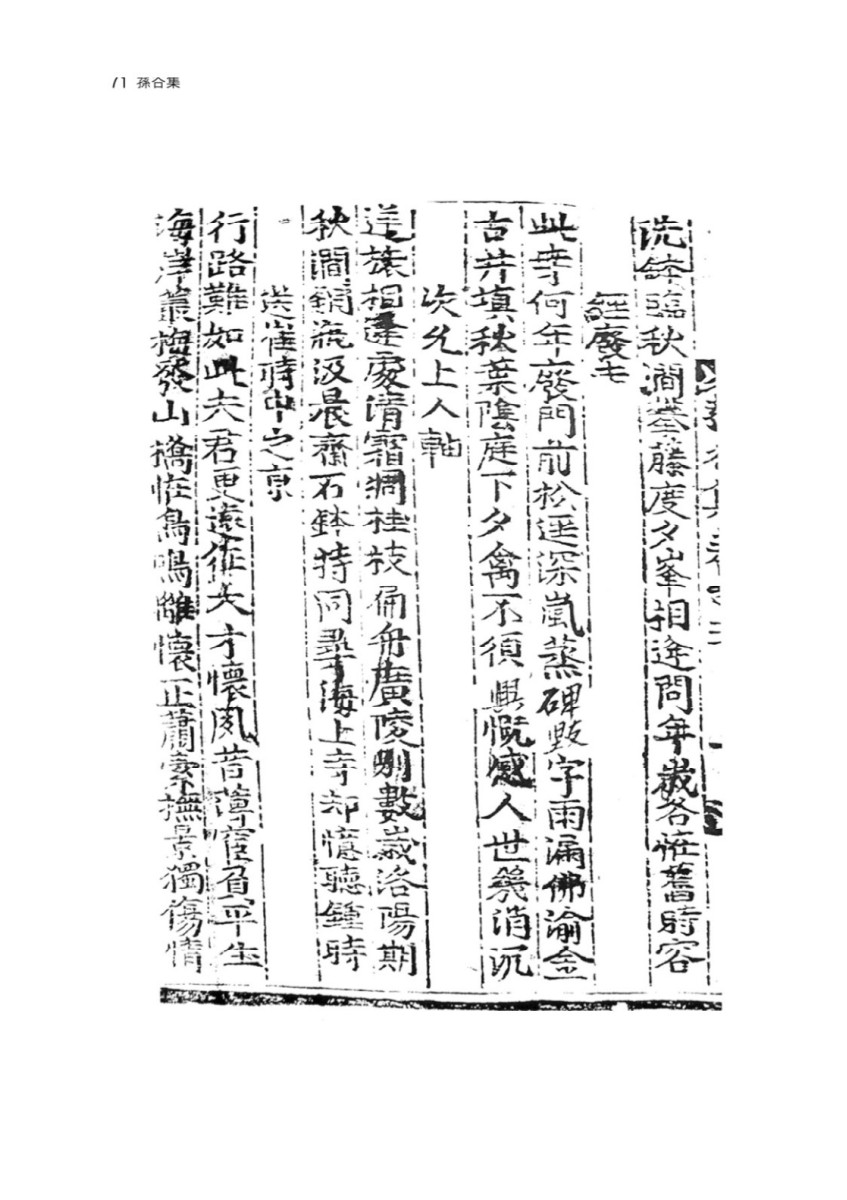 71 孫合集
洗鉢臨秋澗藤度夕峯相逢問年歲各恠舊時容
經廢寺
此寺何年廢門前松逕深嵐蒸碑毀字雨漏佛渝金
古井塡秋葉陰庭下夕禽不須興慨感人世幾消沉
次允上人軸
逆旅相逢處淸霜凋桂枝舟廣陵別數歲洛陽期
秋澗銅甁汲晨齋石鉢持同尋海上寺却憶聽鍾時
送崔時中之京
行路難如此夫君更遠征大才懷夙昔薄宦負平生
海岸叢梅發山橋恠鳥鳴離懷正蕭索撫景獨傷情